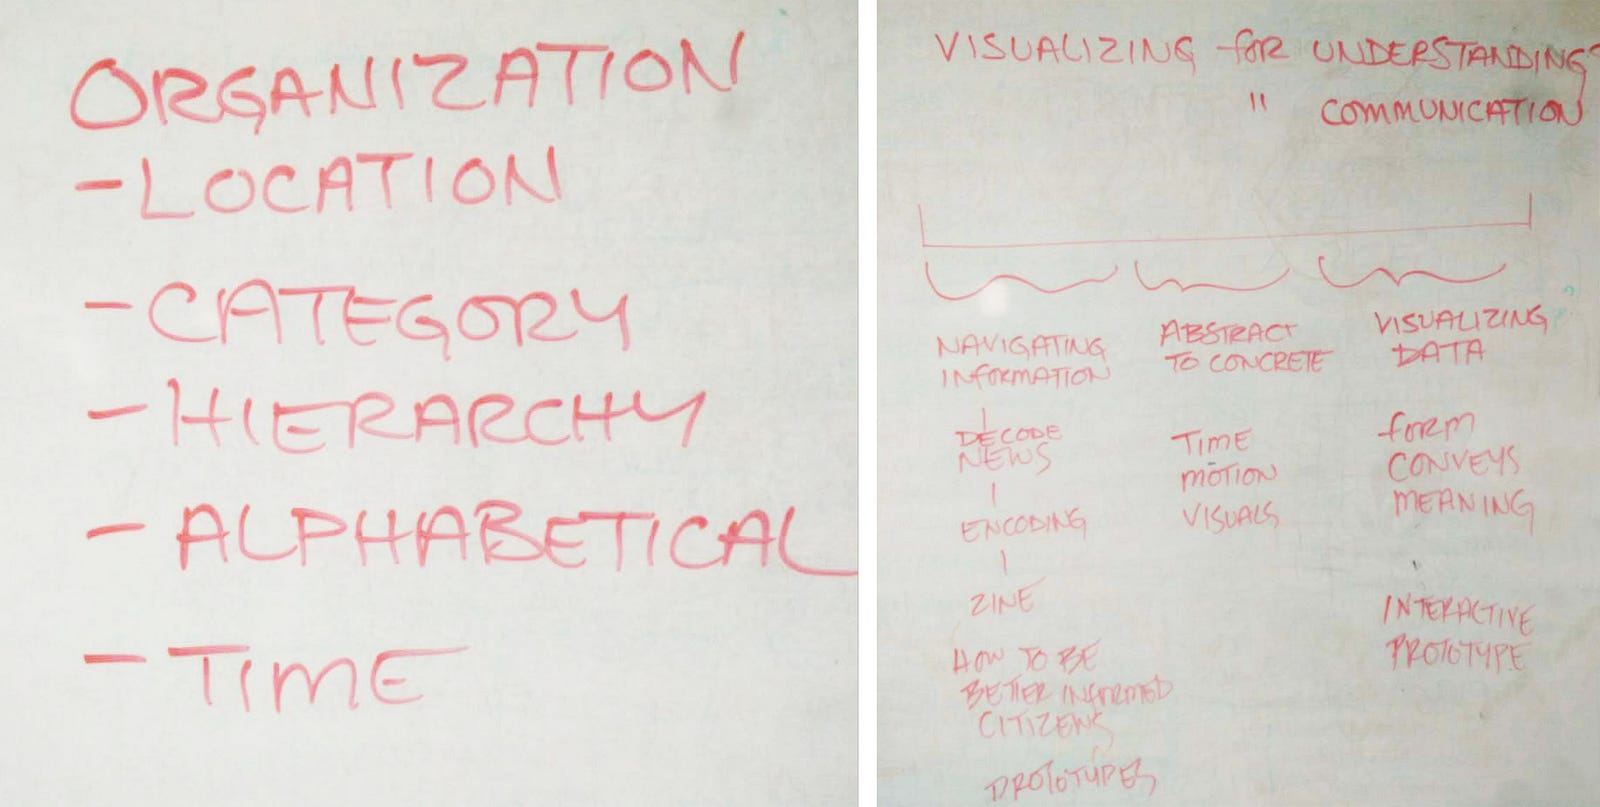 ORGANIZATION
- LOCATION
- CATEGORY
- HIERARCHY
- ALPHABETICAL
- TIME
VISUALIZING for UNDERSTANDING
" COMMUNICATION
NAVIGATING
INFORMATION
DECODE
NEWS
ENCODING
ZINE
HOW TO BE
BETTER INFORMED
CITIZENS
PROTOTYPES
ABSTRACT
TO CONCRETE
TIME
MOTION
VISUALS
VISUALIZING
DATA
form
CONVEYS
MEANING
INTERACTIVE
PROTOTYPE